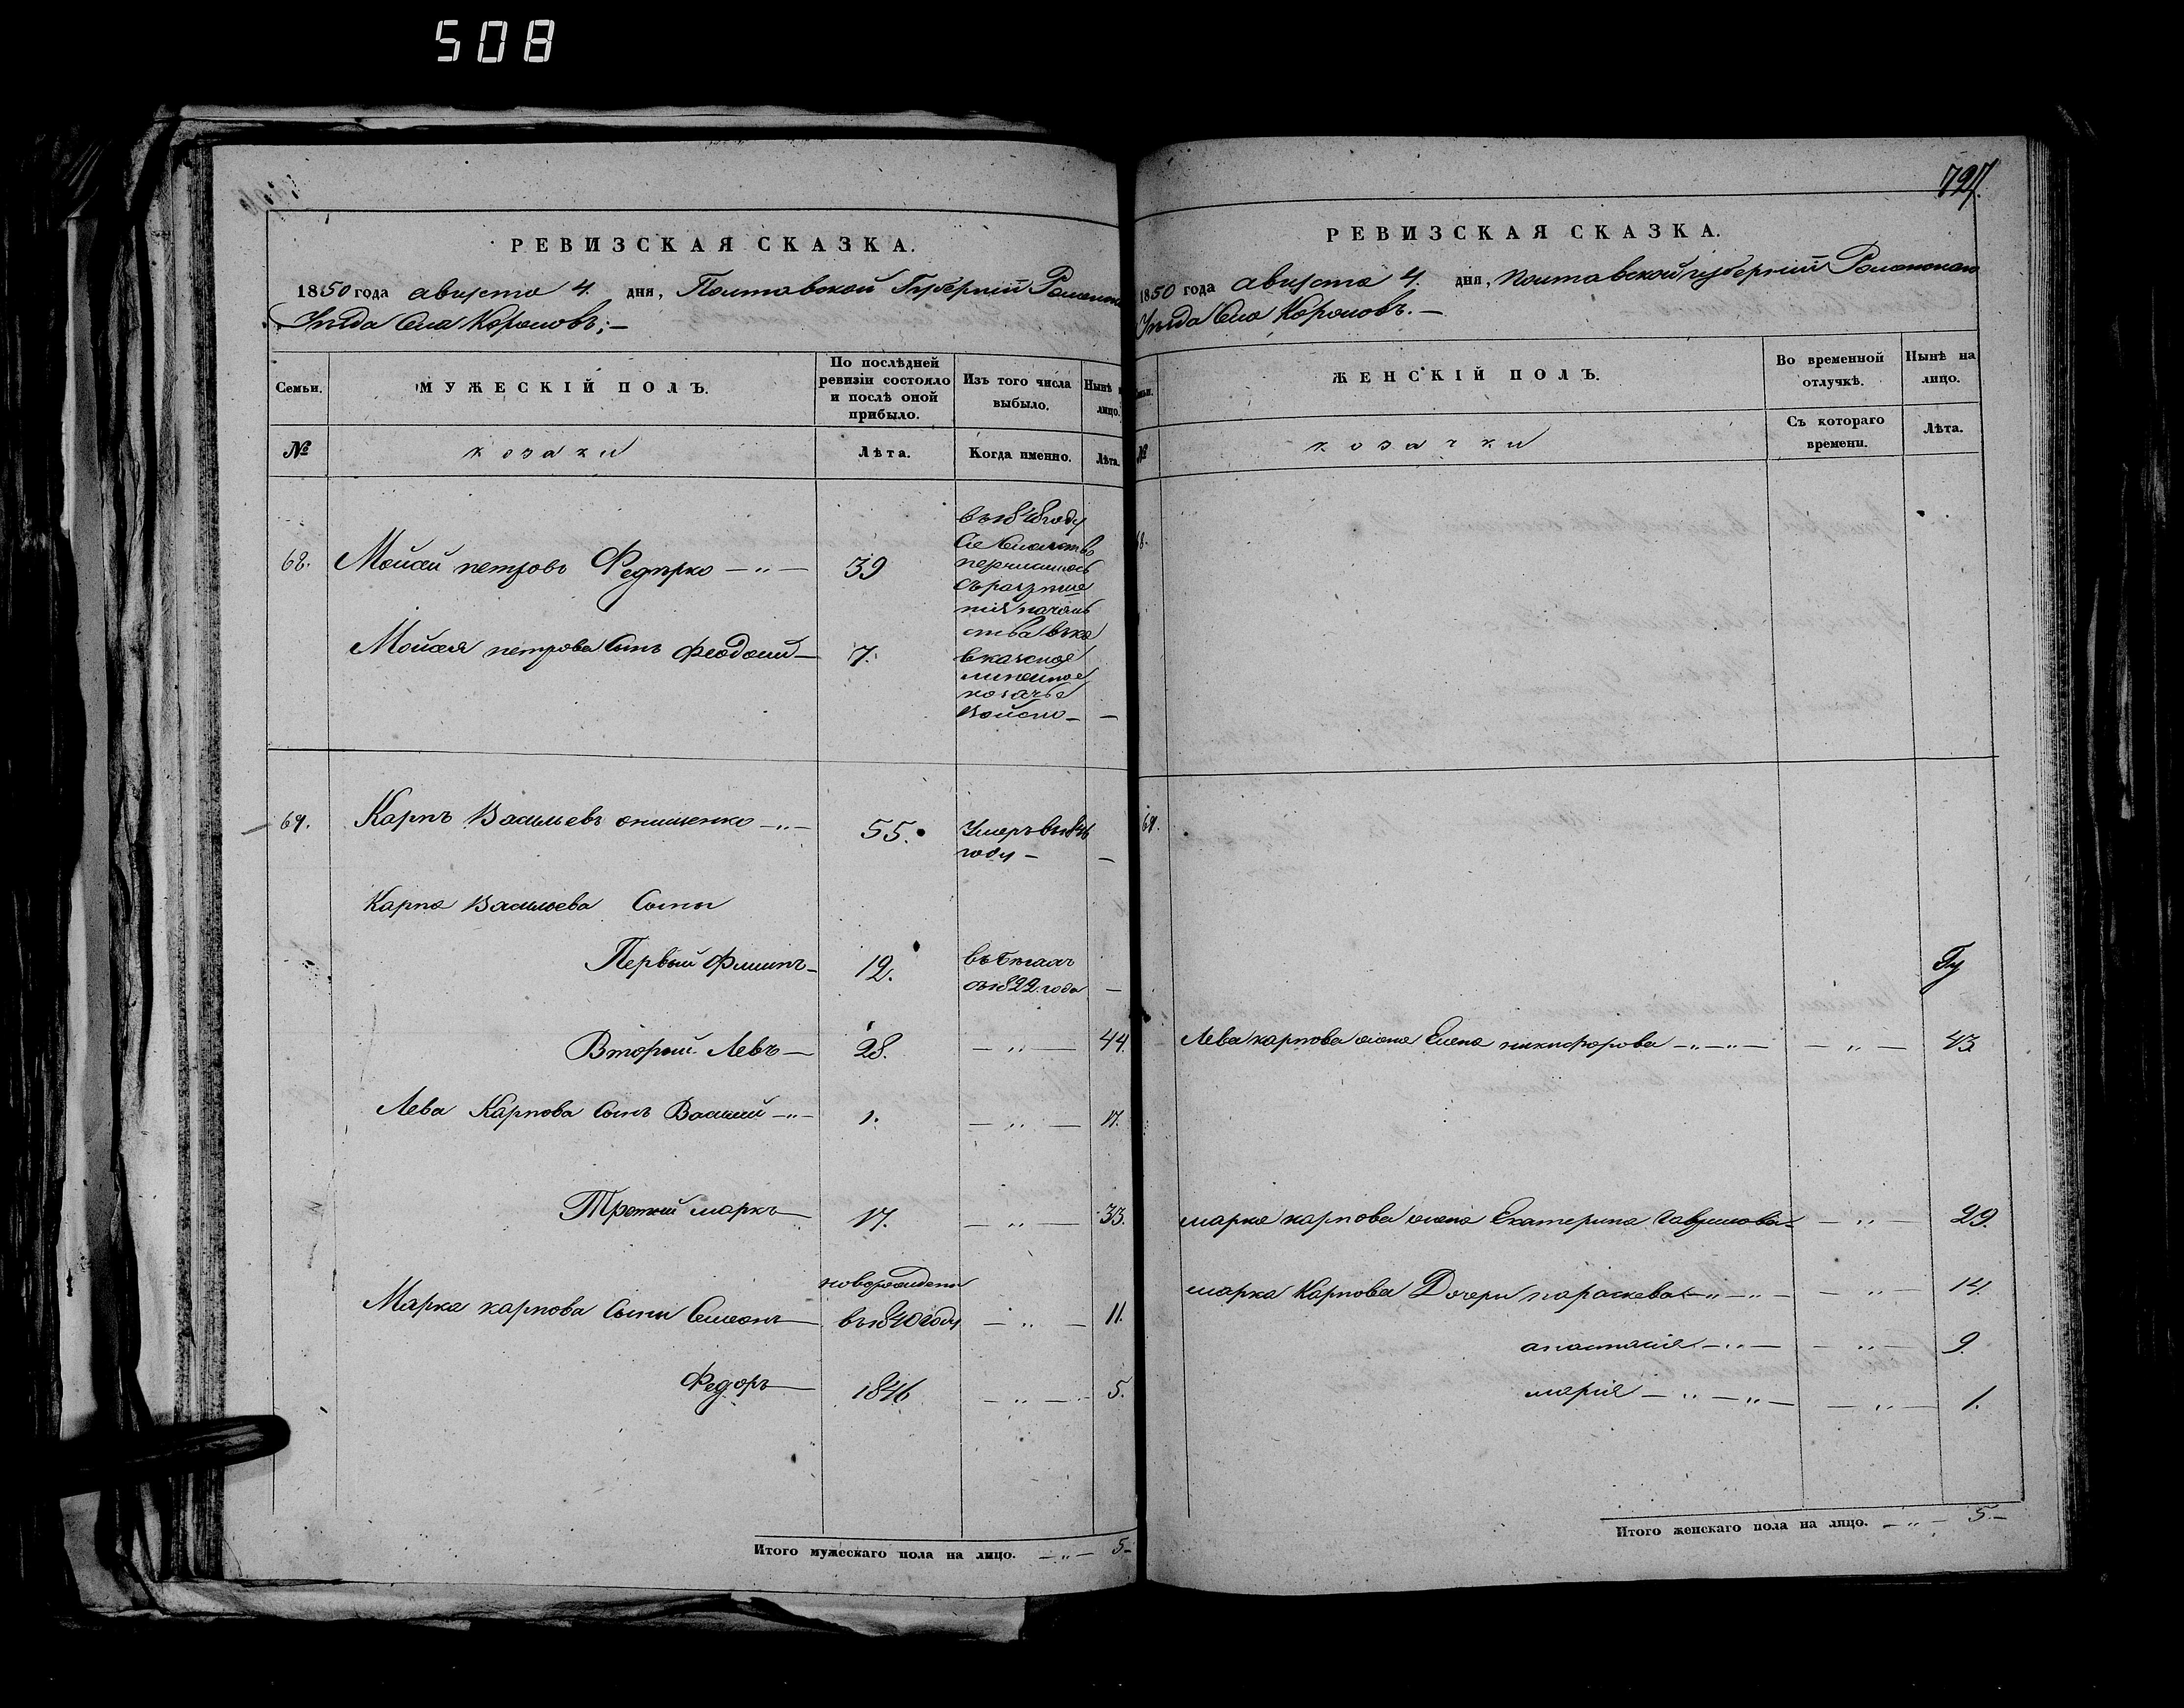 508
РЕВИЗСКАЯ СКАЗКА.
1850 года августа 4. дня, Полтавской Губерніи Роменск
Уѣзда Села Коровов;—
Семьи.
МУЖЕСКІЙ ПОЛЪ.
По послѣдней ревизіи состояло и послѣ оной прибыло.
Изъ того числа выбыло.
Нынѣ лицо.
№
козаки
Лѣта.
Когда именно.
Лѣта.
68. Мойсей петровъ Федирко —"— 39
въ 1848 году
перечислилось
съ разрѣше
нія началь
ства въ ка
вказкое
линейное
козачье
Войско — —
Мойсея петрова Сынъ Феодосій — 7.
69. Карпъ Васильевъ онищенко —"— 55. Умеръ въ 1846
году — —
Карпа Васильева Сыны
Первый Филипъ — 12. въ бѣгахъ
съ 1822 года —
Второй Левъ — 28. —"— 44.
Лева Карпова Сынъ Василий —"— 1. —"— 17.
Третий маркъ — 17. —"— 33.
новорожден
Марка карпова Сыны Семионъ — въ 1840 году —"— 11.
Федоръ — 1846 —"— 5.
Итого мужескаго пола на лицо. —"— 5—
727.
РЕВИЗСКАЯ СКАЗКА.
1850 года августа 4. дня, Полтавской губерніи Роменскаго
Уѣзда Села Коровов.—
ЖЕНСКІЙ ПОЛЪ.
Во временной отлучкѣ.
Нынѣ на лицо.
№
козачки
Съ котораго времени.
Лѣта.
68.
69.
Лева карпова жена Елена никифорова —"—"— —"— 43
марка карпова жена Екатерина Гаврилова — —"— 29.
марка Карпова Дочери параскева —"—"— —"— 14.
анастасія —"— —"— 9.
марія —"—"— —"— 1.
Итого женскаго пола на лицо. —"— 5—